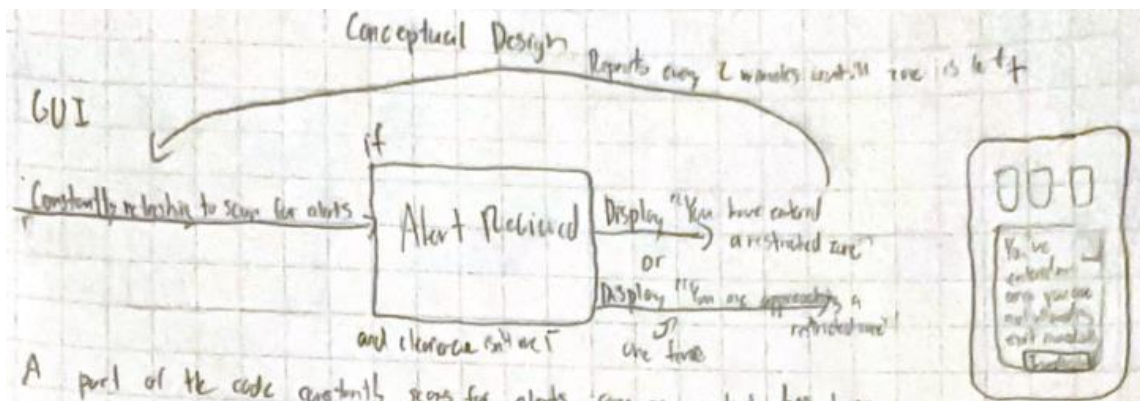 Conceptual Design
Repeats every 2 minutes until zone is left
GUI
if
Constantly refreshing to scan for alerts
Alert Recieved
Display "You have entered
a restricted zone"
or
Display "You are approaching a
restricted zone"
one time
and clearance isn't met
You've
entered an
area you are
not allowed
exit
A part of the code constantly scans for alerts